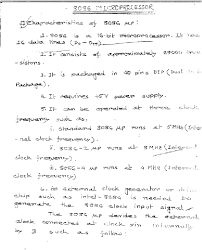 8086 MICROPROCESSOR
Characteristics of 8086 μP :
1. 8086 is a 16-bit microprocessor. It has
16 data lines (D0 - D15)
2. It consists of approximately 29000 tran
-sistors.
3. It is packaged in 40 pins DIP (Dual
Package).
4. It requires +5V power supply.
5. It can be operated at three clock
frequency such as,
i. Standard 8086 μP runs at 5 MHz (Inter
-nal clock frequency).
ii. 8086-2 μP runs at 8 MHz (Internal
clock frequency).
runs at MHz (Internal
clock frequency)
6. An external clock generator or
chip such as intel-8284 is needed to
generate the 8086 clock input signal.
The 8086 μP divides the external
clock connected at clock pin internally
by 3 such as follows: